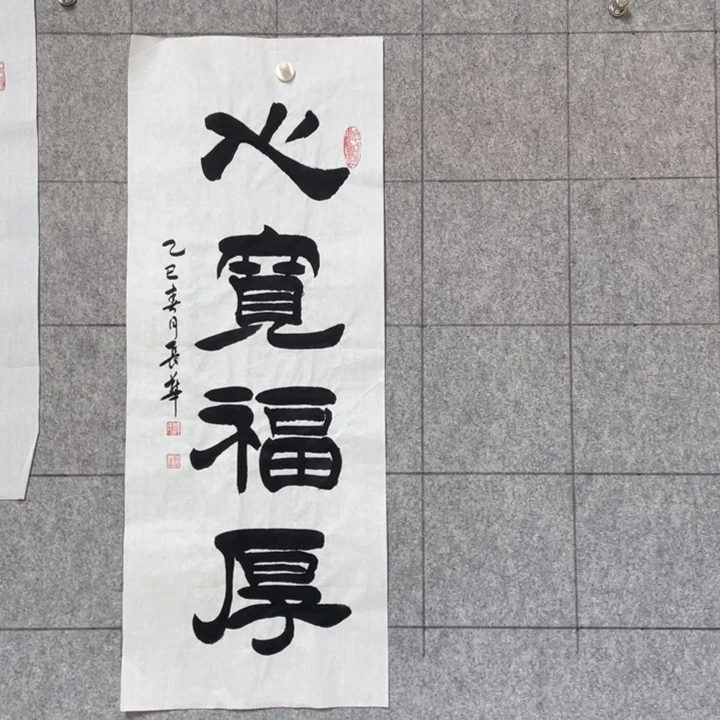 心寬福厚
乙巳春月長華